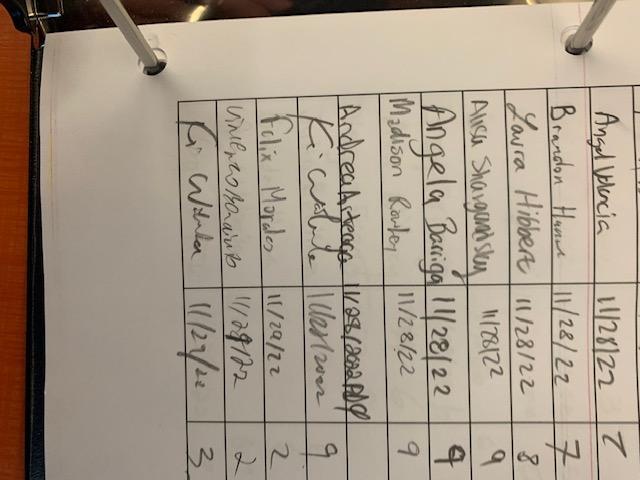 Angel Valencia 11/28/22 7
Brandon 11/28/22 7
Laura Hibbert 11/28/22 8
11/28/22 9
Angela Barriga 11/28/22 9
Madison 11/28/22 9
Andrea Arteaga 11/28/2022
Ki 11/28/2022 9
Felix Morales 11/29/22 2
11/29/22 2
Ki 11/29/22 3